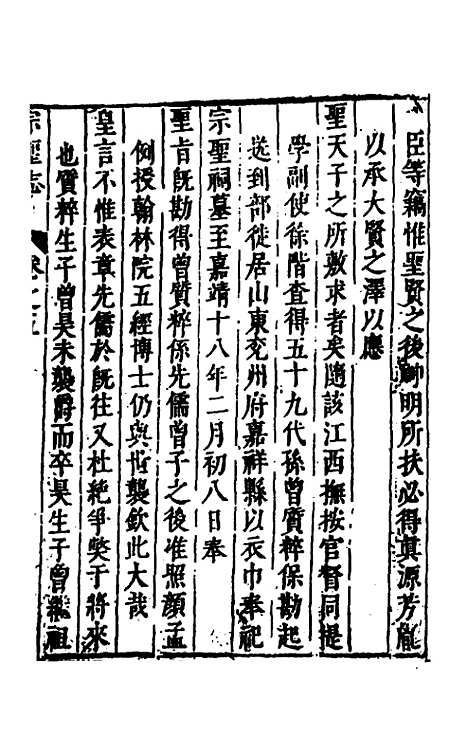 臣等竊惟聖賢之後神明所扶必得真源芳胤
以承大賢之澤以應
聖天子之所敷求者矣隨該江西撫按官督同提
學副使徐階查得五十九代孫曾質粹保勘起
送到部徙居山東兖州府嘉祥縣以衣巾奉祀
宗聖祠墓至嘉靖十八年二月初八日奉
聖旨既勘得曾質粹係先儒曾子之後准照顏孟
例授翰林院五經博士仍與世襲欽此大哉
皇言不惟表章先儒於既往又杜絶爭獘于將來
也質粹生子曾昊未襲爵而卒昊生子曾繼祖
宗聖志 卷之五